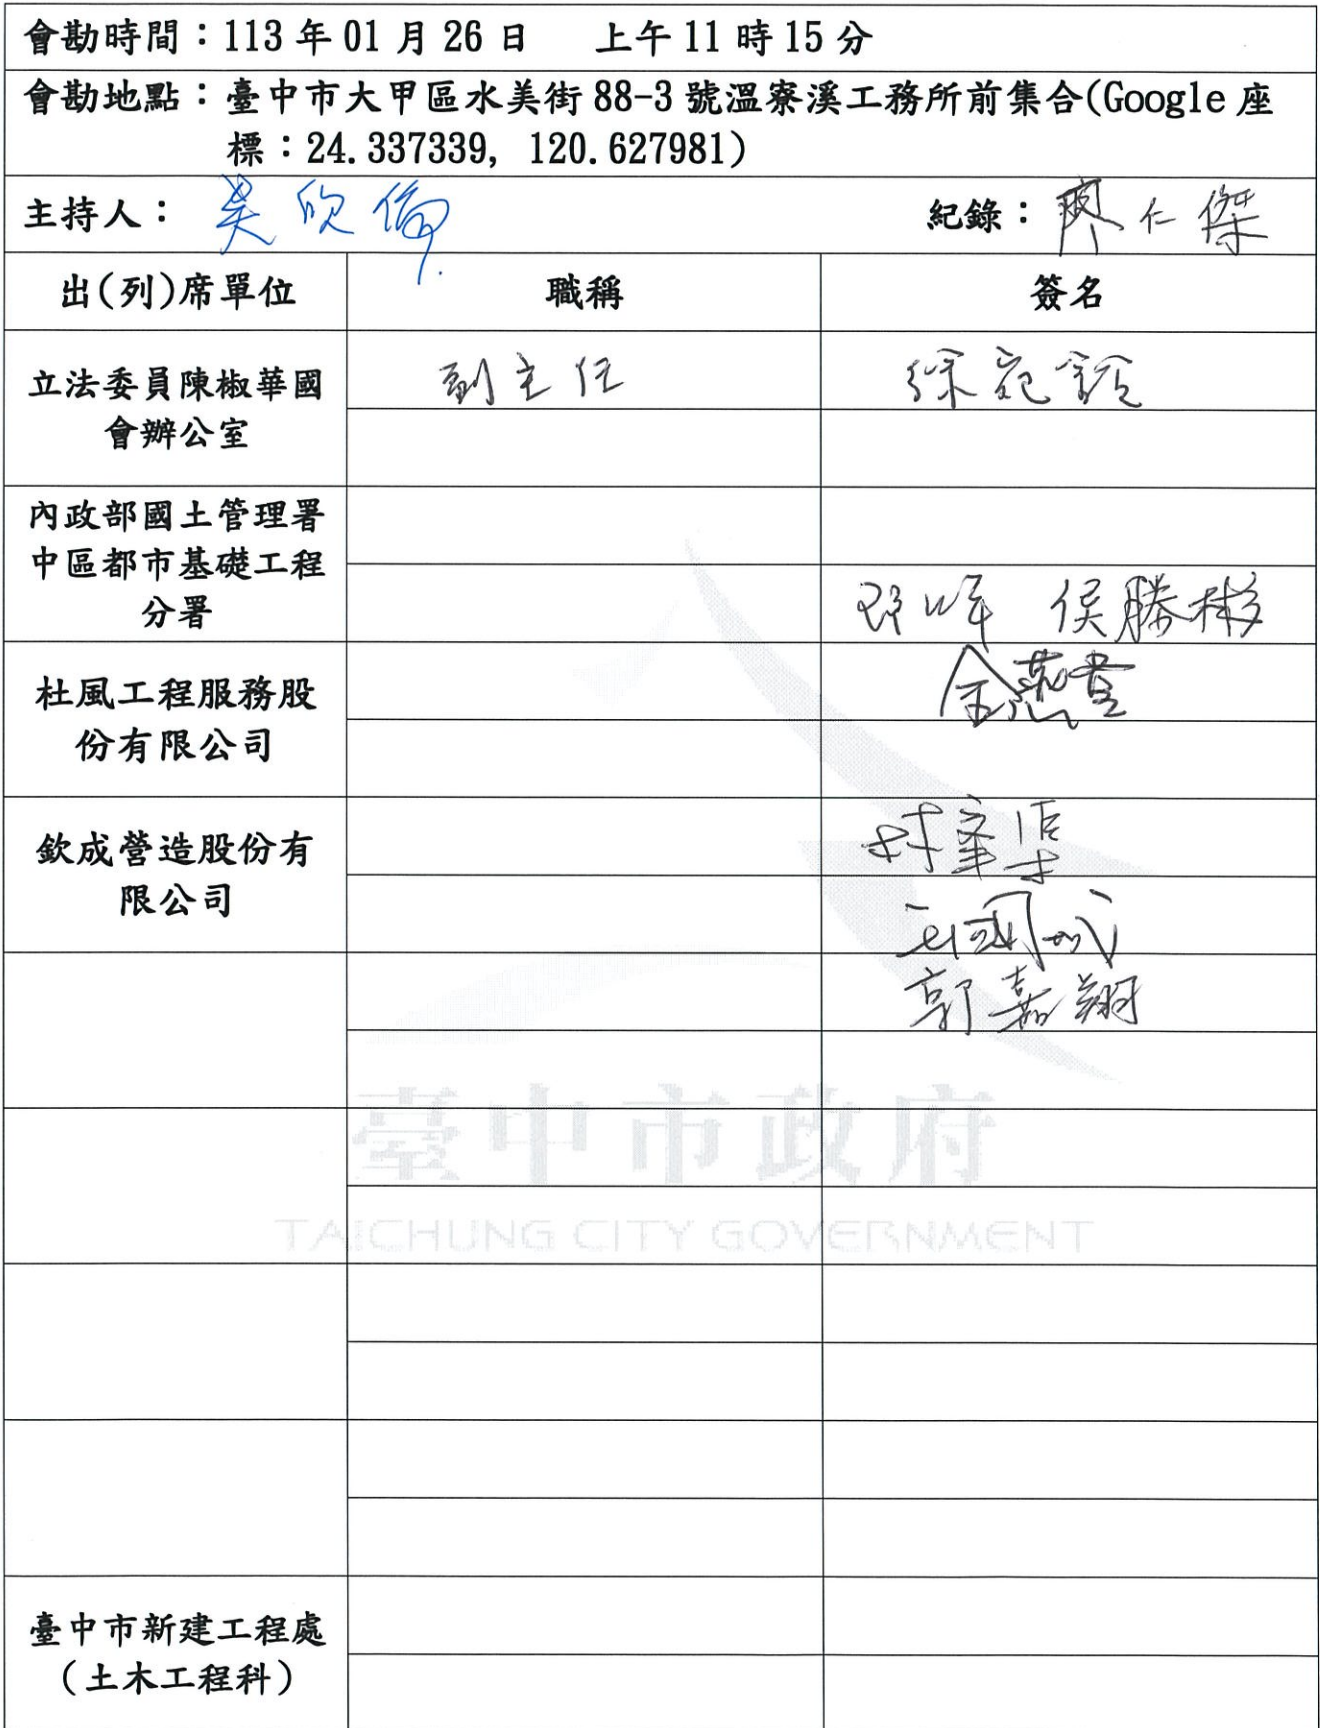 會勘時間：113年01月26日 上午11時15分
會勘地點：臺中市大甲區水美街88-3號溫寮溪工務所前集合(Google座
標：24.337339, 120.627981)
主持人：吳欣倫 紀錄：廖仁傑
出(列)席單位 職稱 簽名
立法委員陳椒華國
會辦公室
副主任 徐宛鈴
內政部國土管理署
中區都市基礎工程
分署
侯勝彬
杜風工程服務股
份有限公司
欽成營造股份有
限公司
郭嘉翔
臺中市政府
TAICHUNG CITY GOVERNMENT
臺中市新建工程處
(土木工程科)